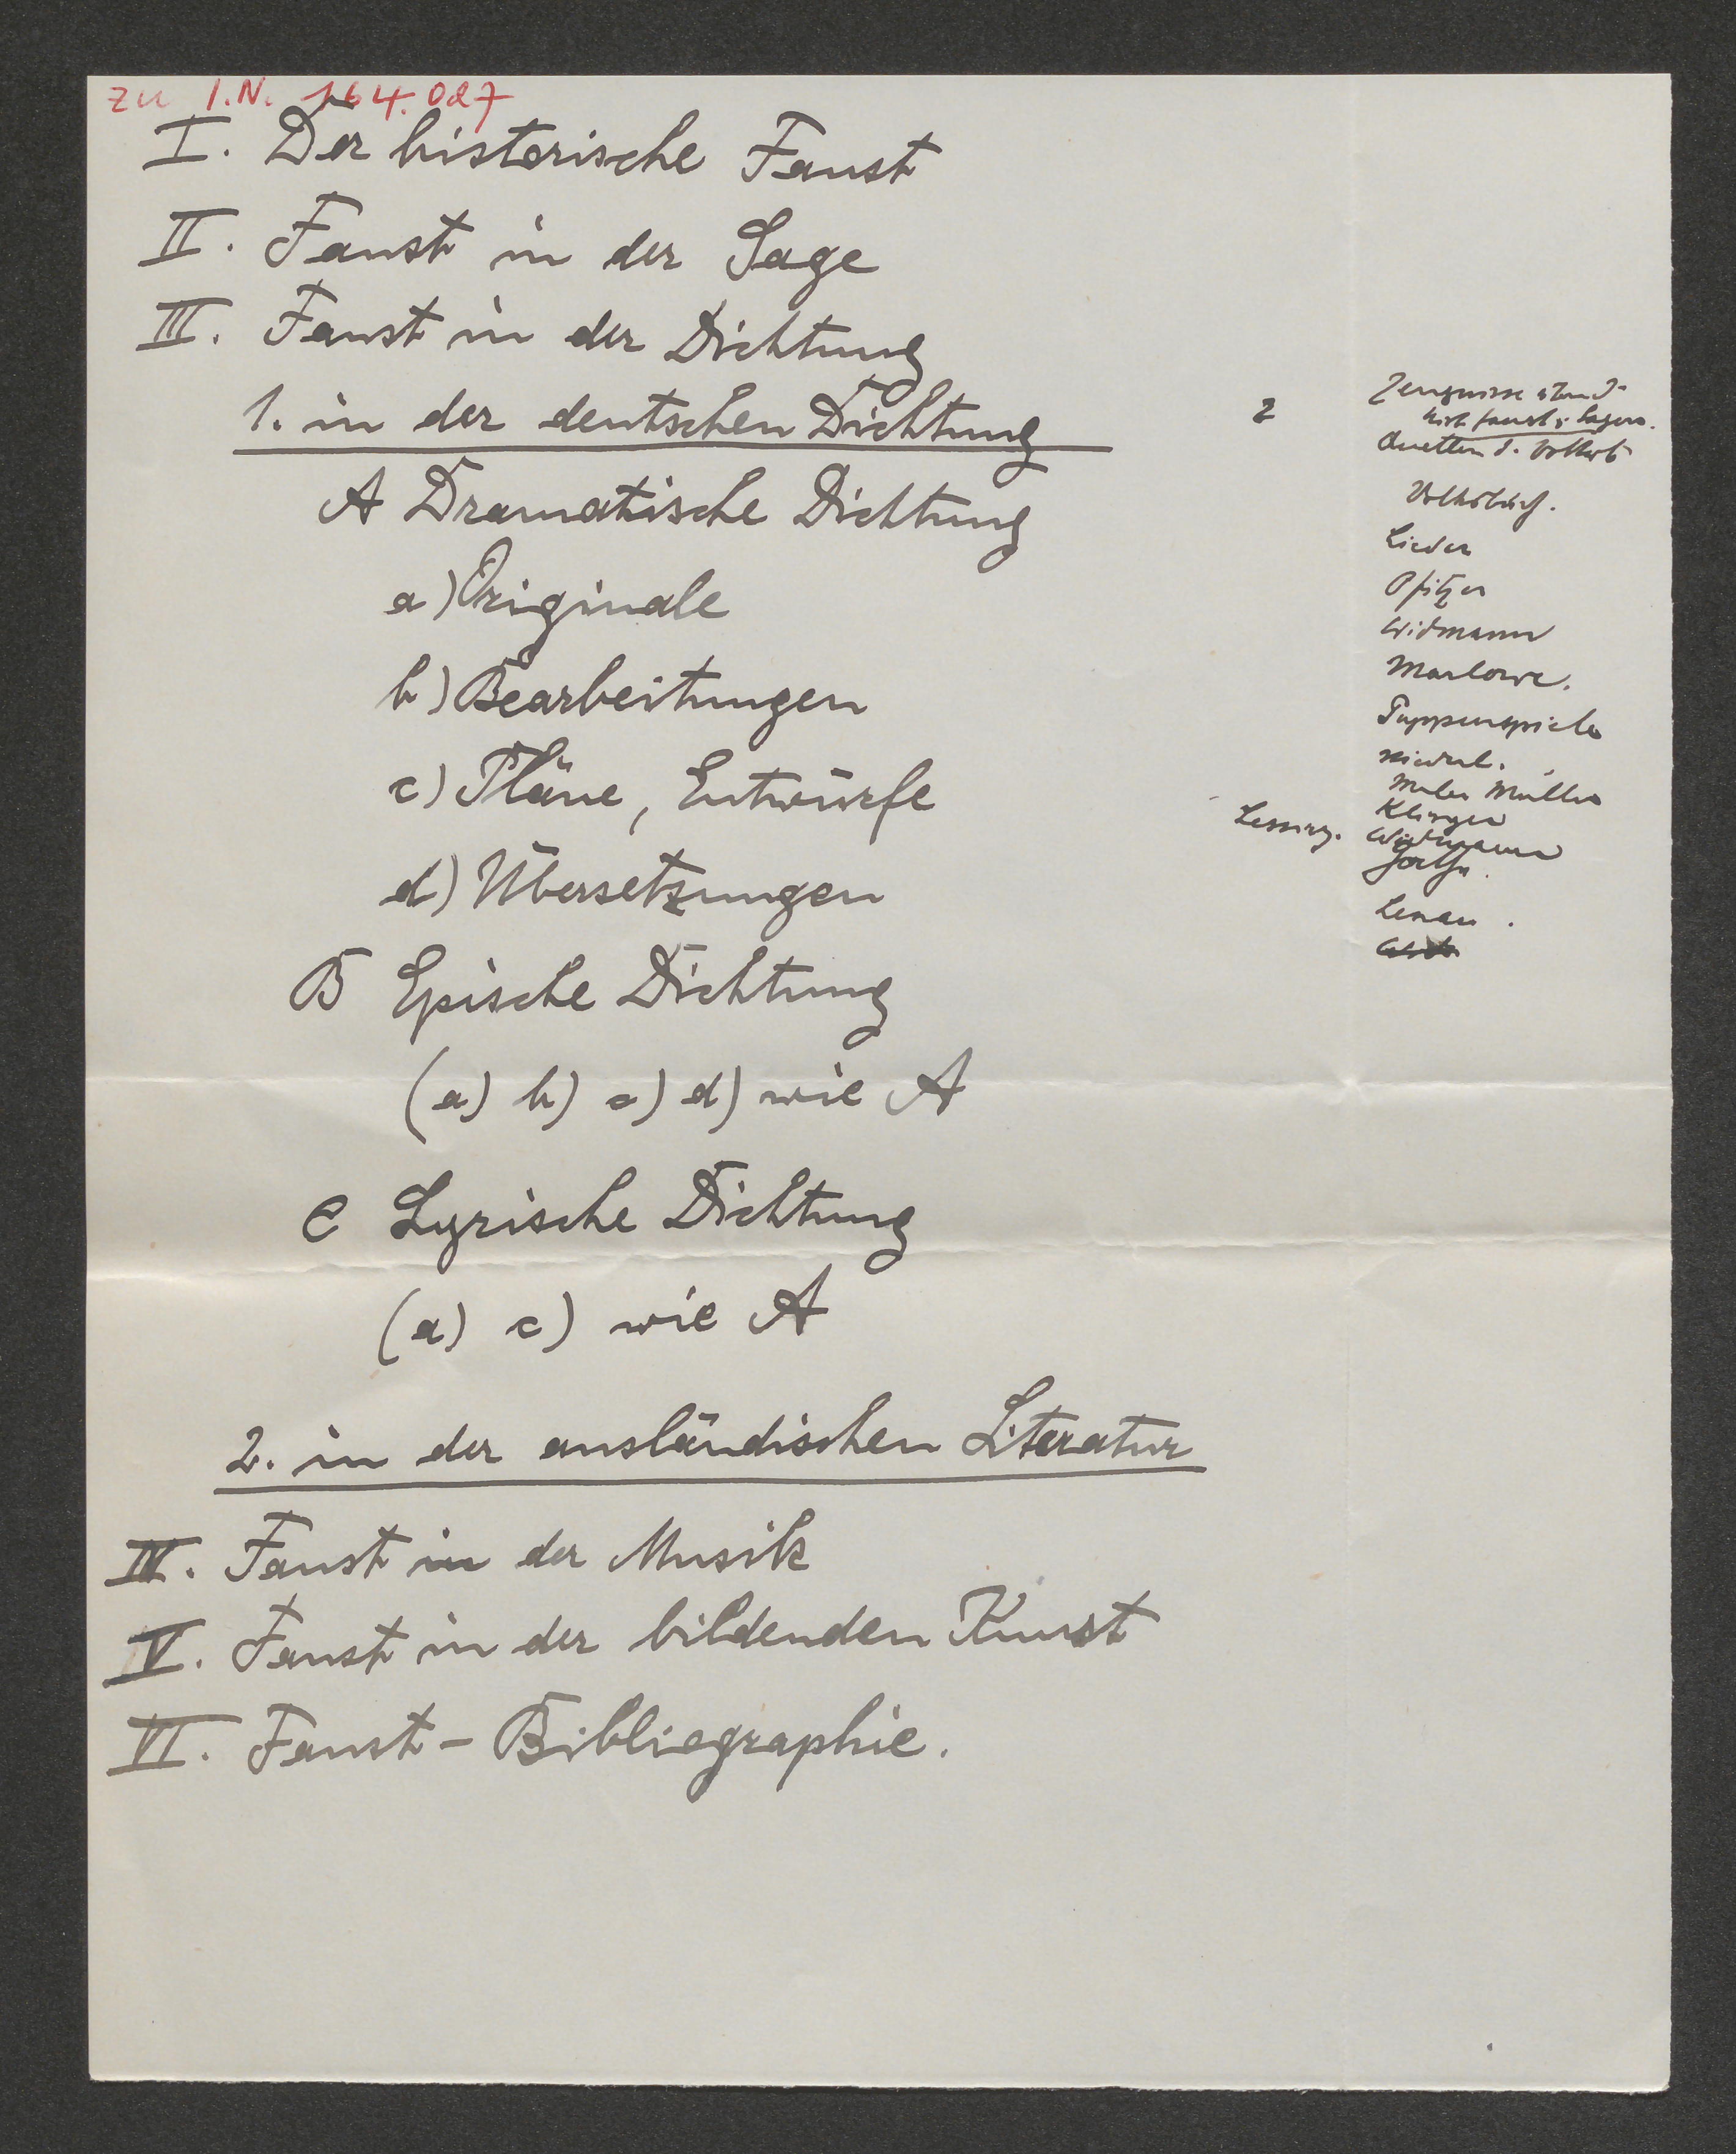 zu I.N. 164.027
I. Der historische Faust
II. Faust in der Sage
III. Faust in der Dichtung
1. in der deutschen Dichtung
A Dramatische Dichtung
a) Originale
b) Bearbeitungen
c) Pläne, Entwürfe
d) Übersetzungen
B Epische Dichtung
(a) b) c) d) wie A
C Lyrische Dichtung
(a) c) wie A
2. in der ausländischen Literatur
IV. Faust in der Musik
V. Faust in der bildenden Kunst
VI. Faust-Bibliographie.
2
Zeugnisse
hist Faust
Quellen d.
Volksbüch.
Lieder
Pfitzer
Widmann
Marlowe.
Puppenspiele
Maler Müller
Klinger
Lessing.
Goethe
Lenau.